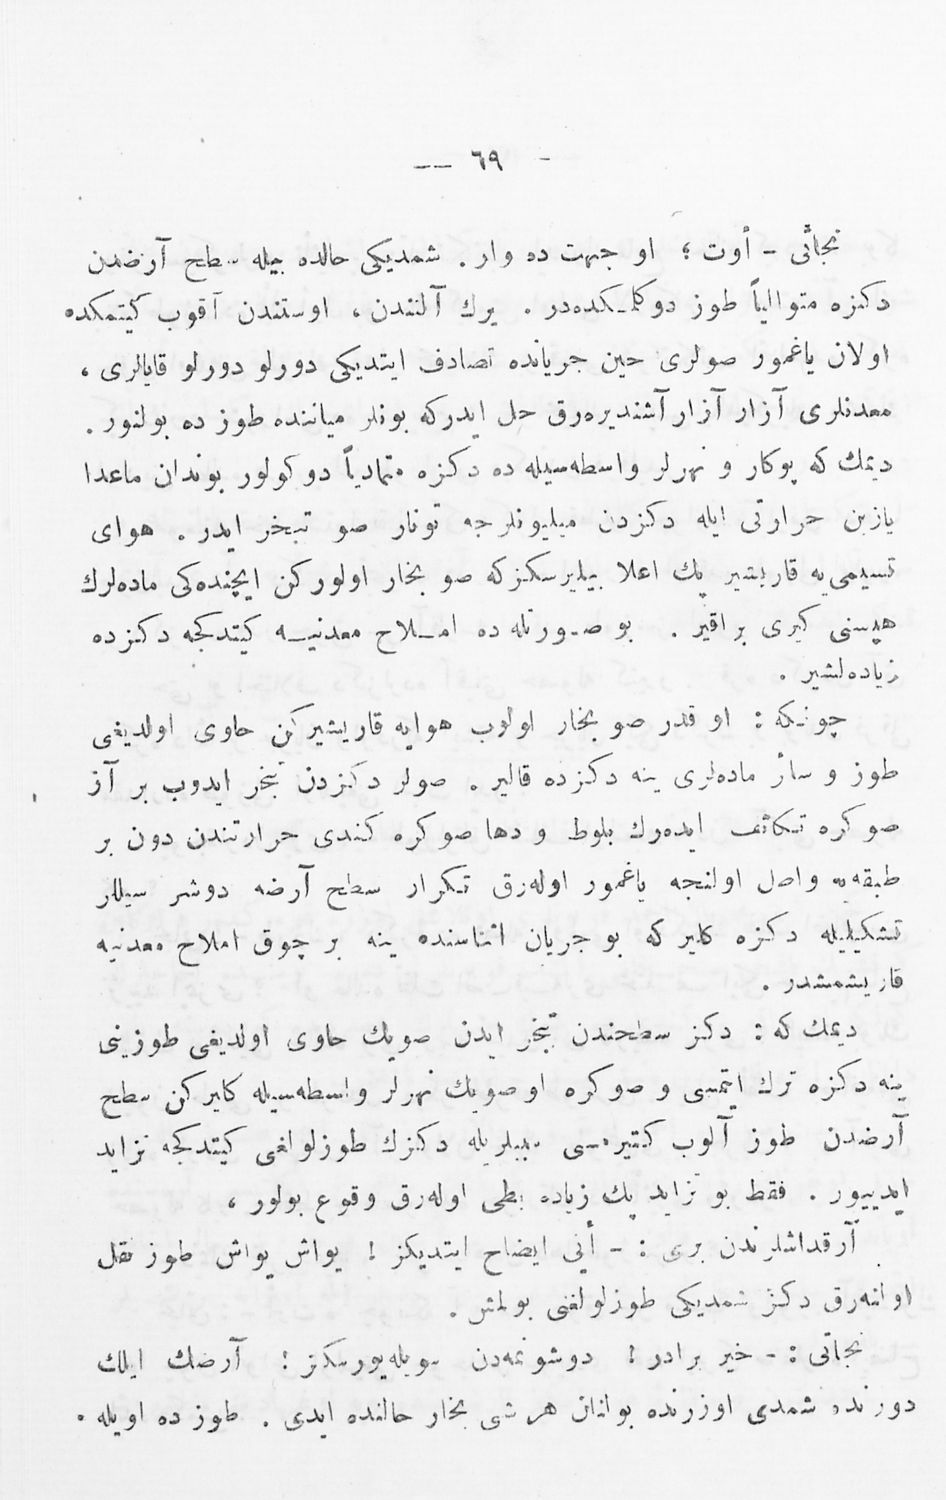 — ٦٩ —
نجاتی - أوت ؛ او جهت ده وار . شمدیکی حالده بیله سطح آرضدن
دكزه متوالیاً طوز دوكلمكده‌در . یرك آلتندن ، اوستندن آقوب كیتمكده
اولان یاغمور صولری حین جریانده تصادف ایتدیكی دورلو دورلو قایالری ،
معدنلری آزار آزار آشندیره‌رق حل ایدركه بونلر میاننده طوز ده بولنور .
دیمك كه پوكار و نهرلر واسطه‌سیله ده دكزه متمادیاً دوكولور بوندان ماعدا
یازین حرارتی ایله دكزدن میلیونلرجه تونلر صو تبخر ایدر . هوای
نسیمی‌یه قاریشیر پك اعلا بیلیرسكزكه صو بخار اولوركن ایچنده‌كی ماده‌لرك
هپسنی كیری براقیر . بو صورتله ده املاح معدنیه كیتدكجه دكزده
زیاده‌لشیر .
چونكه : او قدر صو بخار اولوب هوایه قاریشیركن حاوی اولدیغی
طوز و سائر ماده‌لری ینه دكزده قالیر . صولر دكزدن تبخر ایدوب بر آز
صوكره تكاثف ایده‌رك بلوط و دها صوكره كندی حرارتندن دون بر
طبقه‌یه واصل اولنجه یاغمور اوله‌رق تكرار سطح آرضه دوشر سیللر
تشكیلیله دكزه كلیر كه بو جریان اثناسنده ینه بر چوق املاح معدنیه
قاریشمشدر .
دیمك كه : دكز سطحندن تبخر ایدن صویك حاوی اولدیغی طوزینی
ینه دكزه ترك ایتمسی و صوكره او صویك نهرلر واسطه‌سیله كلیركن سطح
آرضدن طوز آلوب كتیرمسی سببلریله دكزك طوزلولغی كیتدكجه تزاید
ایدییور . فقط بو تزاید پك زیاده بطی اوله‌رق وقوع بولور ،
آرقداشلرندن بری : - أیی ایضاح ایتدیكز ! یواش یواش طوز نقل
اولنه‌رق دكز شمدیكی طوزلولغنی بولمش .
نجاتی : - خیر برادر ! دوشونمه‌دن سویله‌یورسكز ! آرضك ایلك
دورنده شمدی اوزرنده بولنان هر شی بخار حالنده ایدی . طوز ده اویله .